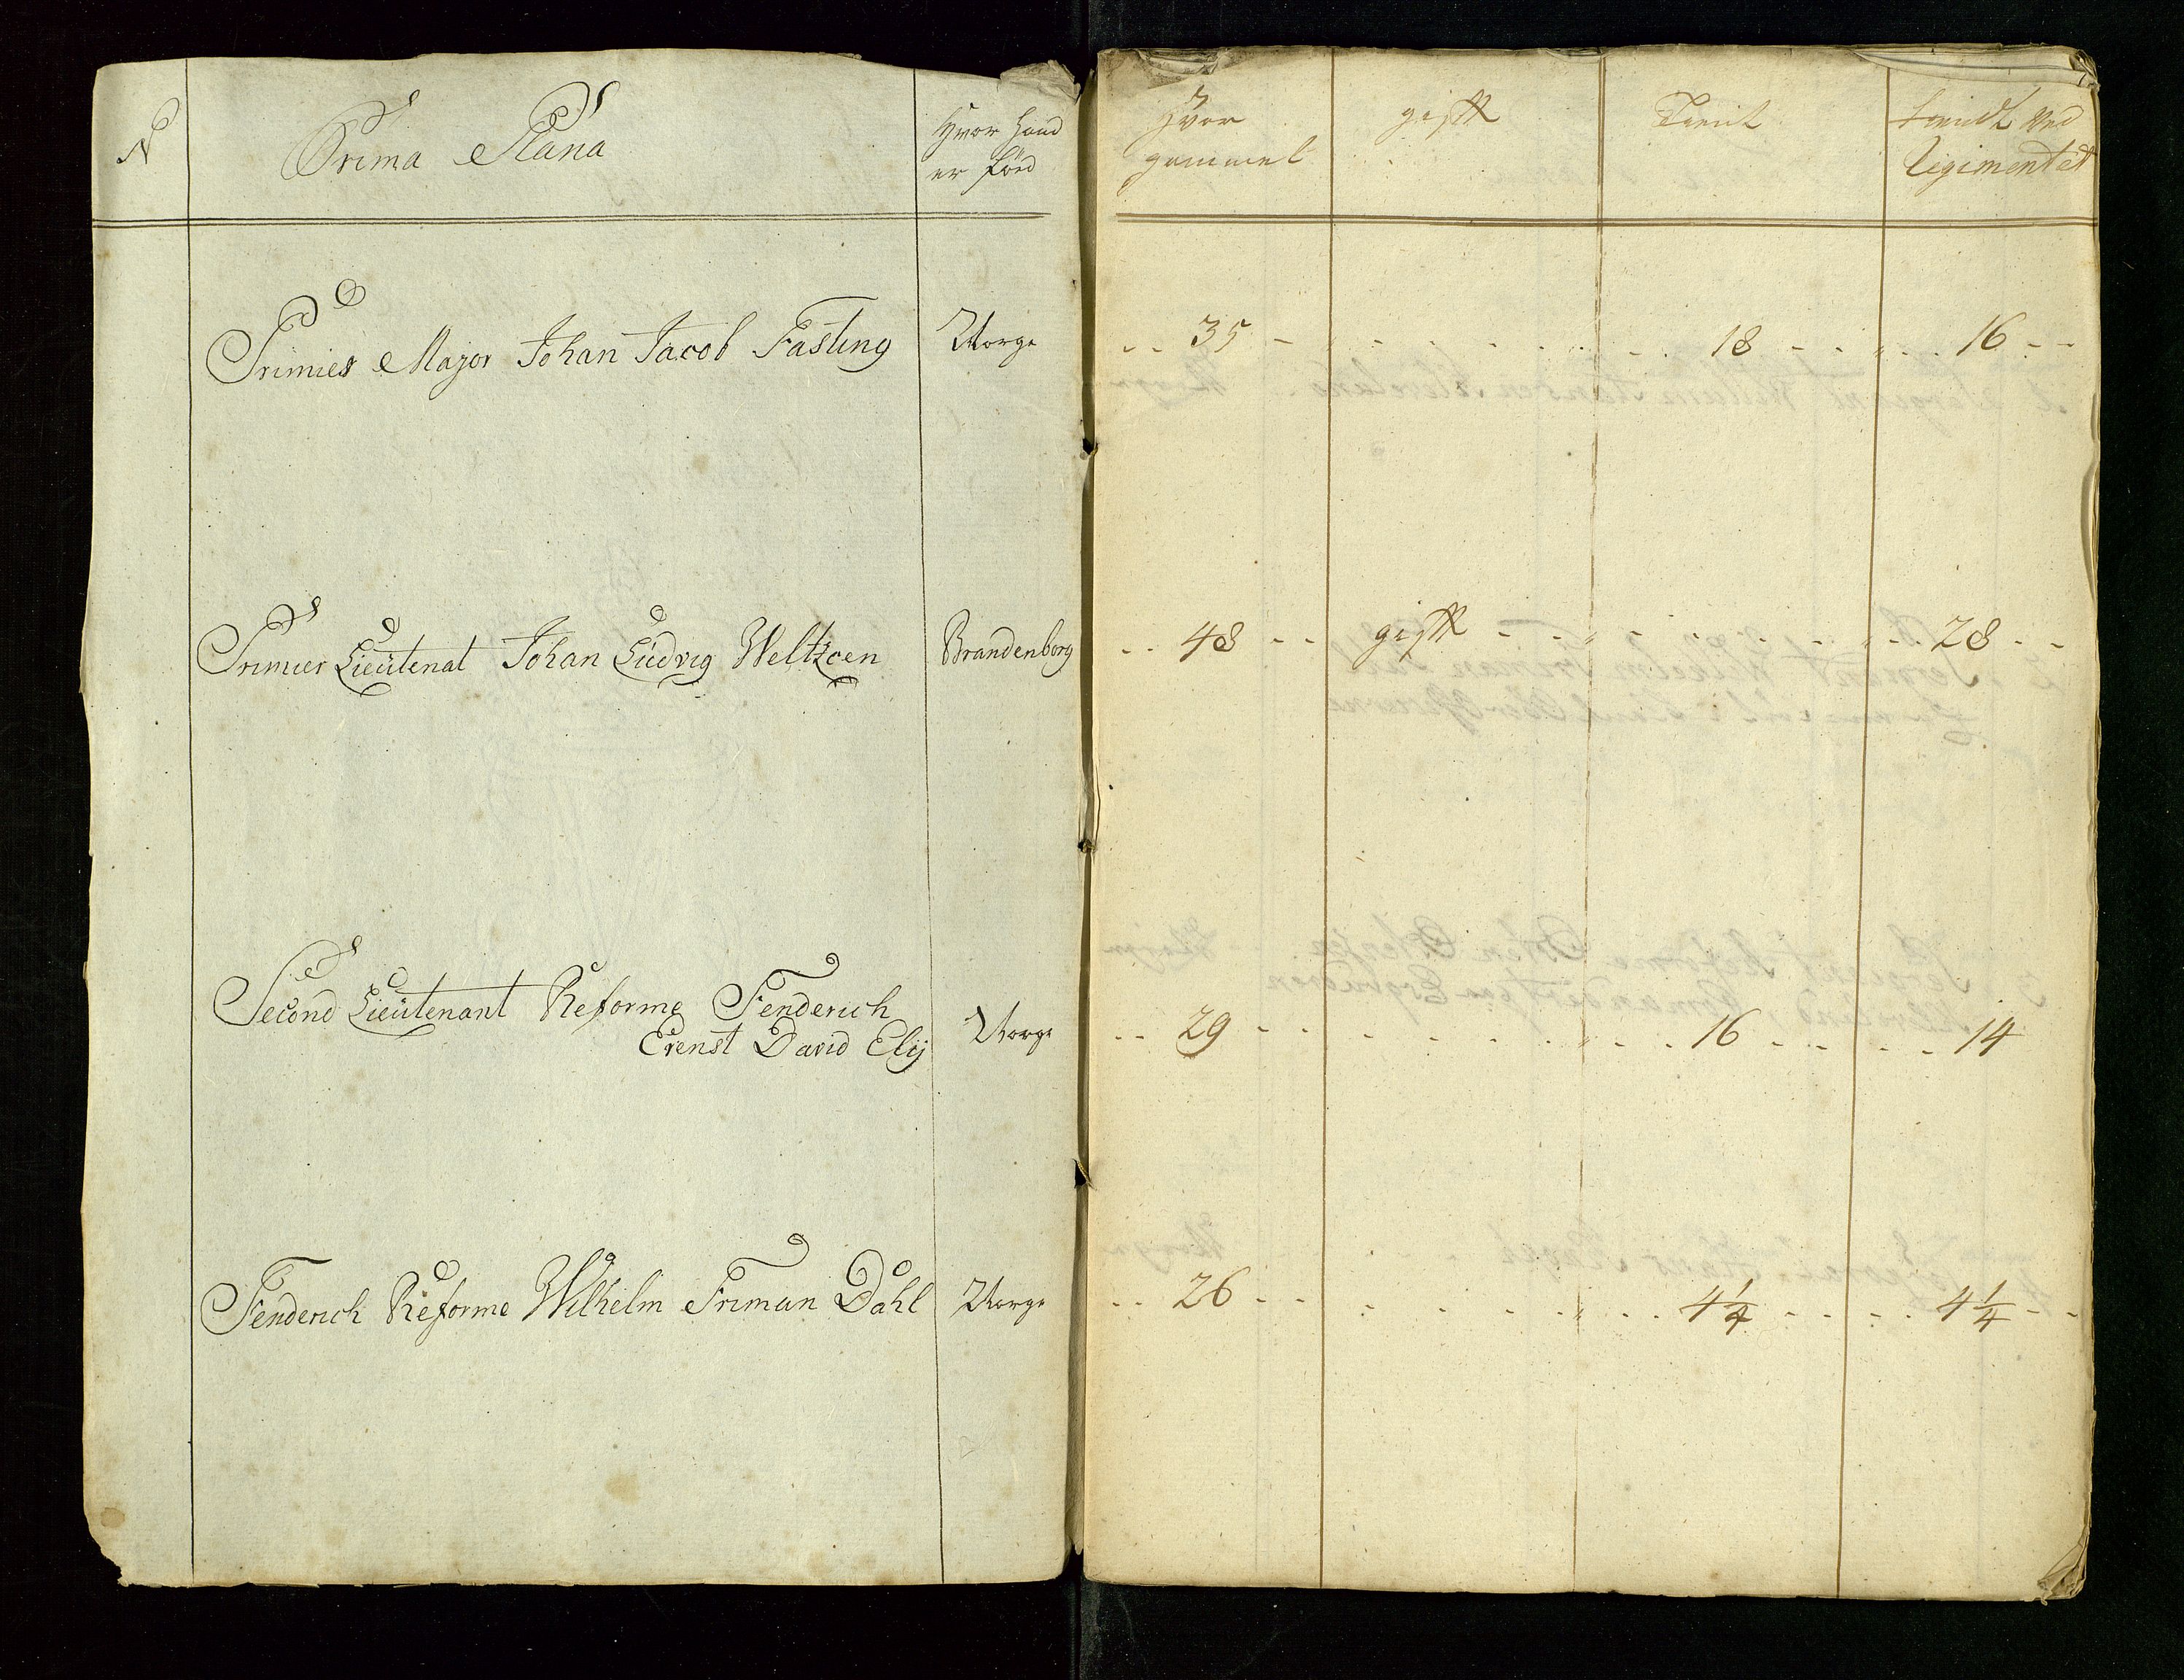 N
Prima Plana
Hvor Hand
er förd
Hvor
gammel
gift
Tient
tient Ved
Regimentet
Primier Major Johan Jacob Fasting Norge - - 35 - 18 - - 16 - -
Primier Lieütenat Johan Lüdvig Weltzen Brandenborg - - 48 - - gift - - 28 - -
Second Lieütenant Reforme Fenderich
Erenst David Elÿ Norge - - 29 - - 16 - - 14
Fenderich Reforme Wilhelm Friman Dahl Norge - - 26 - - 4 1/4 - - 4 1/4 - -